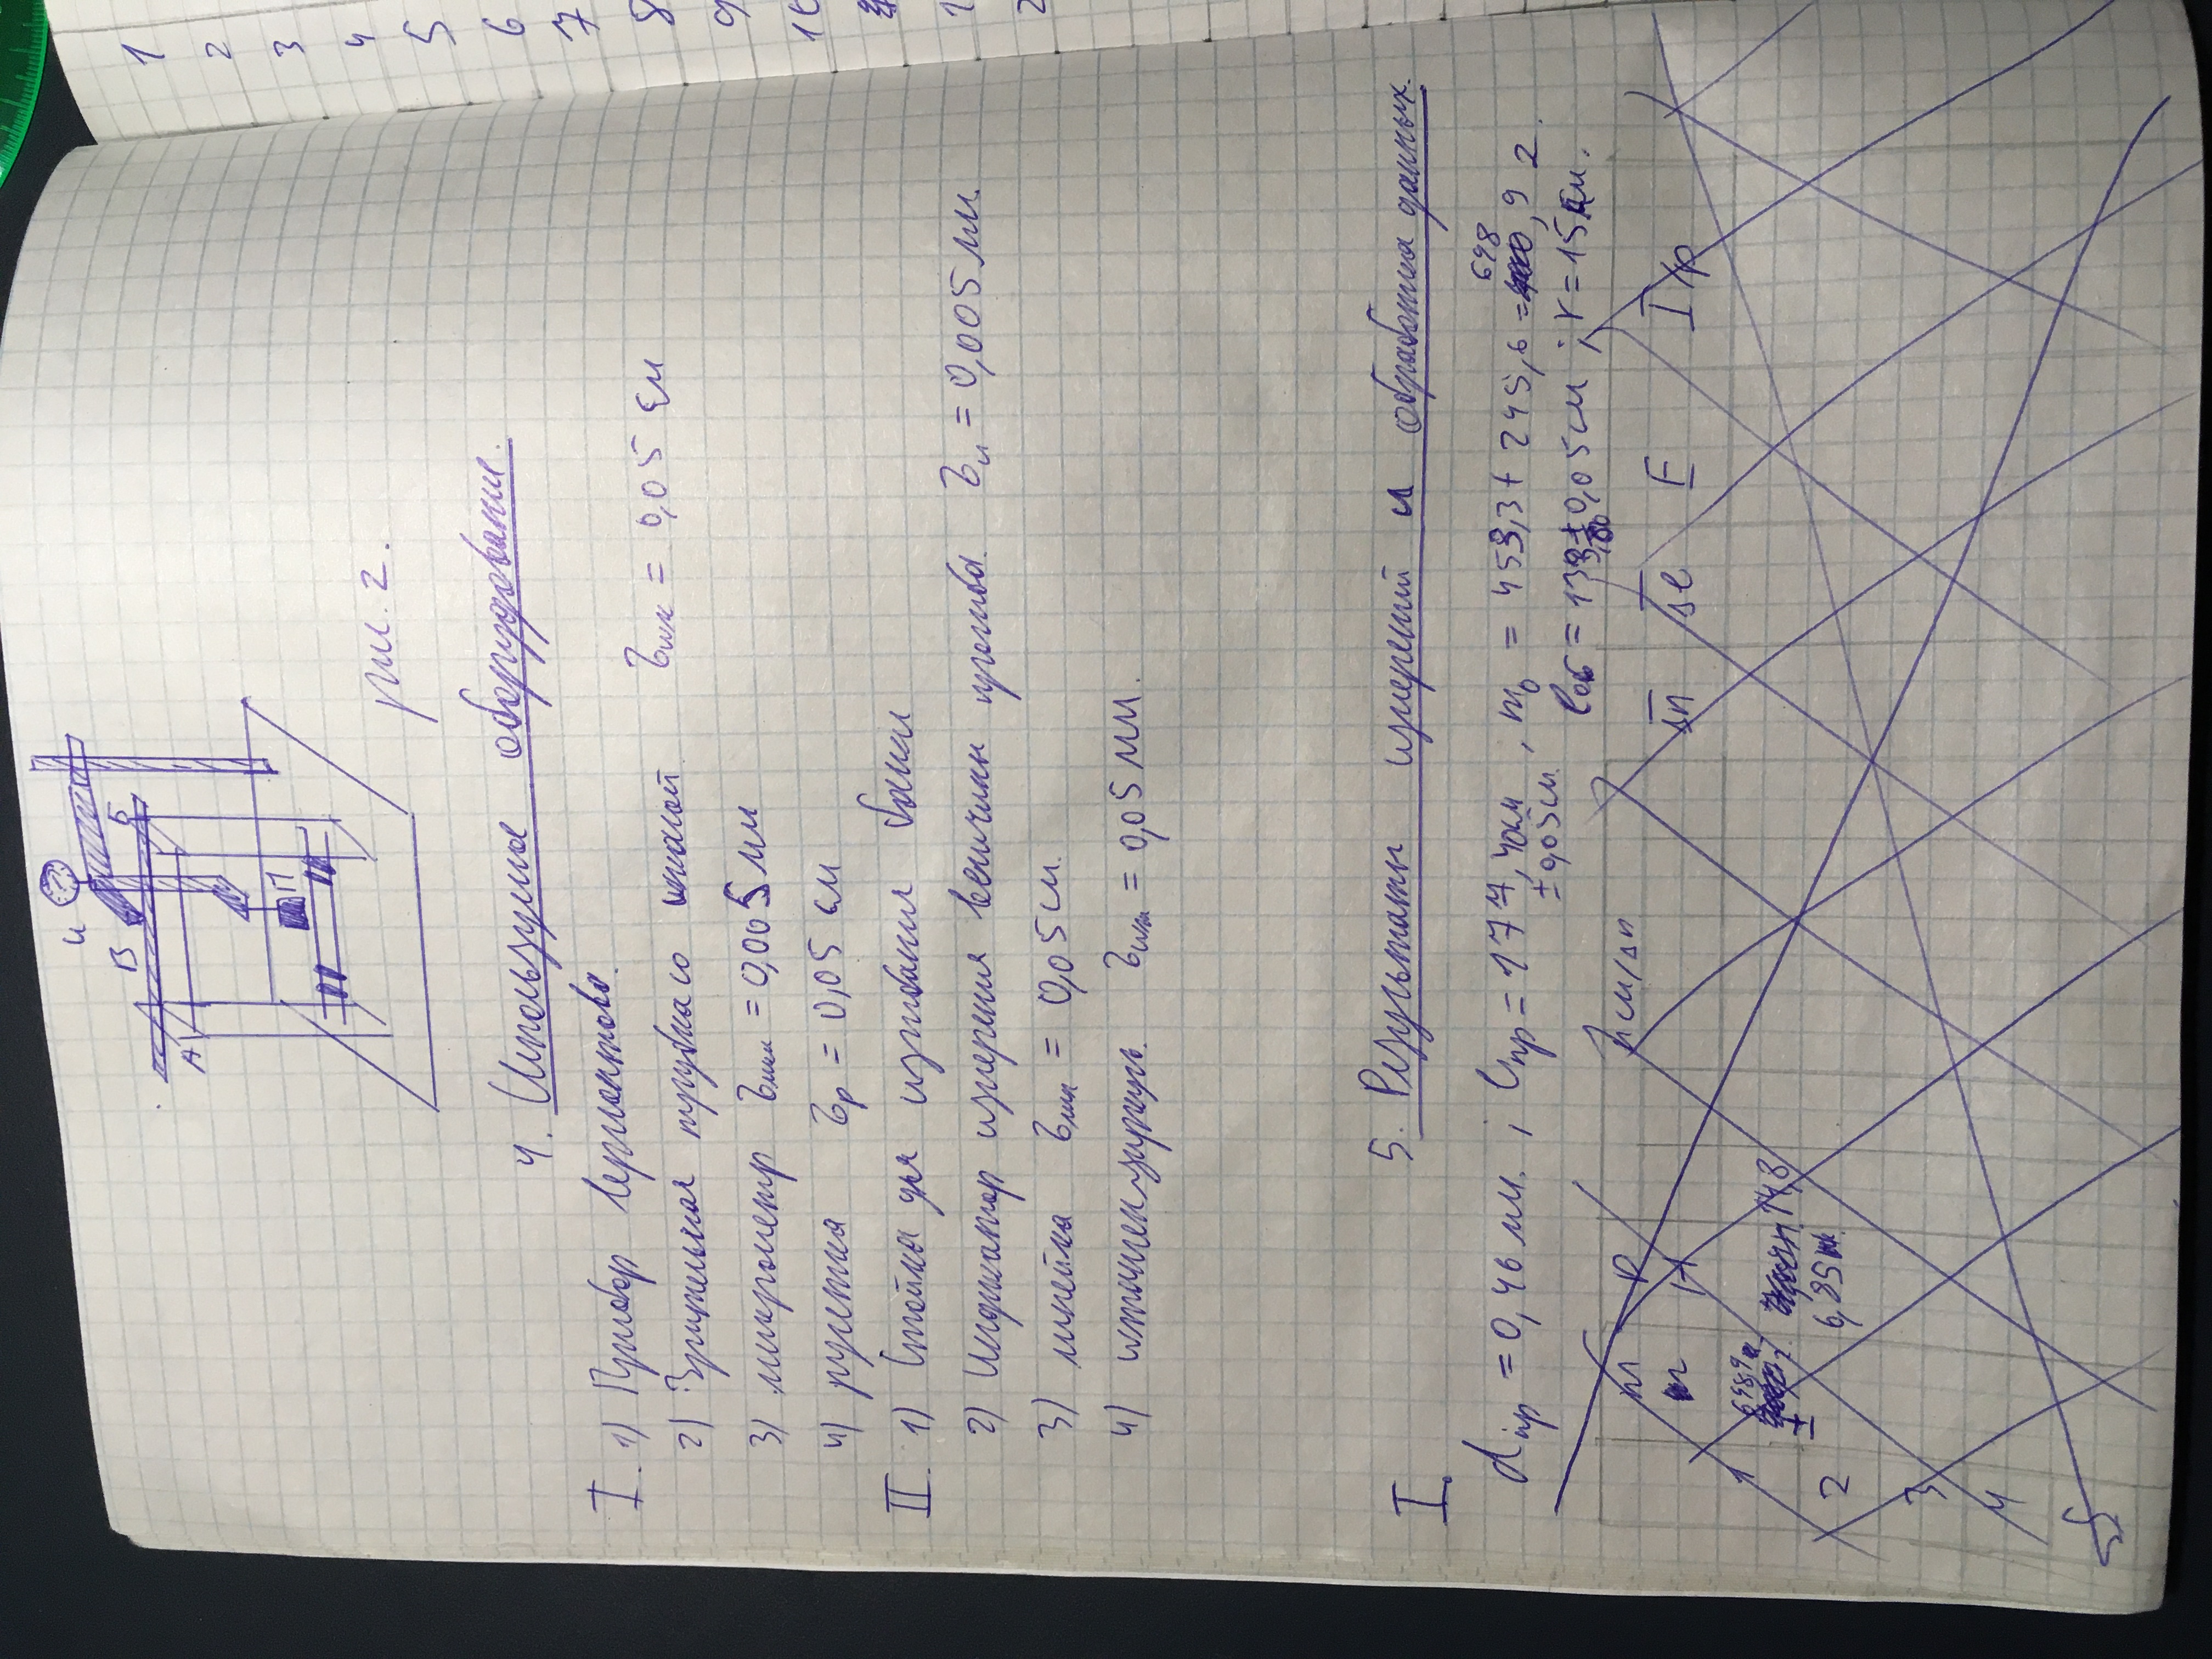 И
В
Б
А
П
рис. 2.
4. Используемое оборудование.
I. 1) Прибор Лермантова.
2) Зрительная трубка со шкалой σшк = 0,05 см
3) микрометр σмик = 0,005 мм
4) рулетка σр = 0,05 см
II. 1) Стойка для изгибания балки
2) Индикатор измерения величины прогиба. σи = 0,005 мм.
3) линейка σлин = 0,05 см.
4) штанген-циркуль. σшт = 0,05 мм.
5. Результаты измерений и обработка данных.
I.
dпр = 0,46 мм. ; lпр = 177,40 см ± 0,05 см. , m0 = 453,3 + 245,6 = 698,9 г.
lоб = ± 0,05 см ; r = 15 см.
m P n см/Δn
Н Δn Δl E
1 14,8
2 6,85
3
4
5
1
2
3
4
5
6
7
8
9
1
2